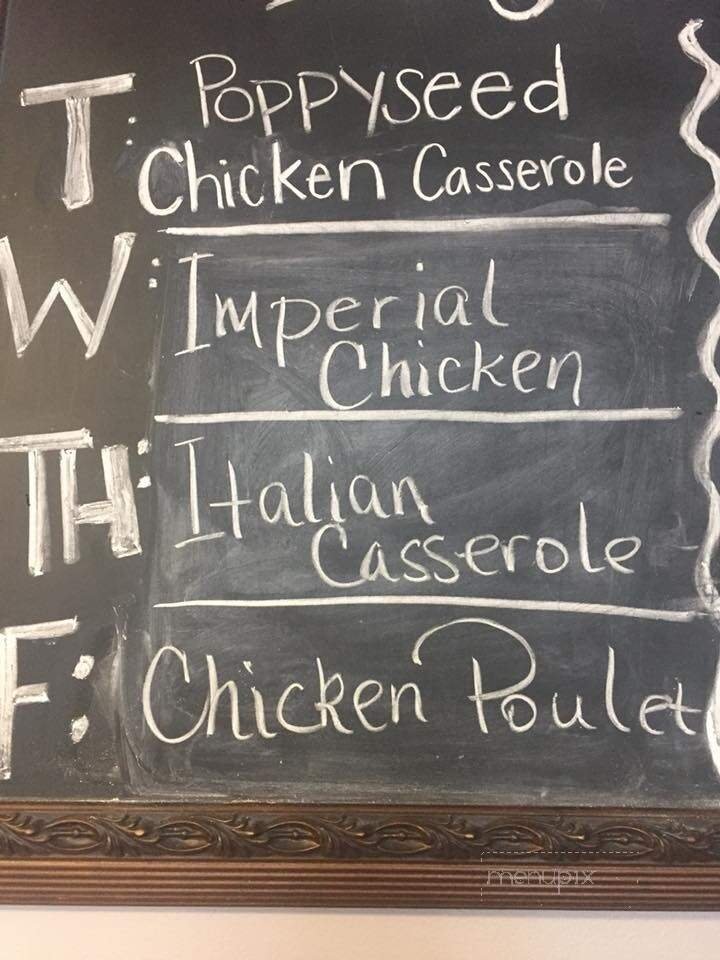 T: Poppyseed
Chicken Casserole
W: Imperial
Chicken
TH: Italian
Casserole
F: Chicken Poulet
menupix